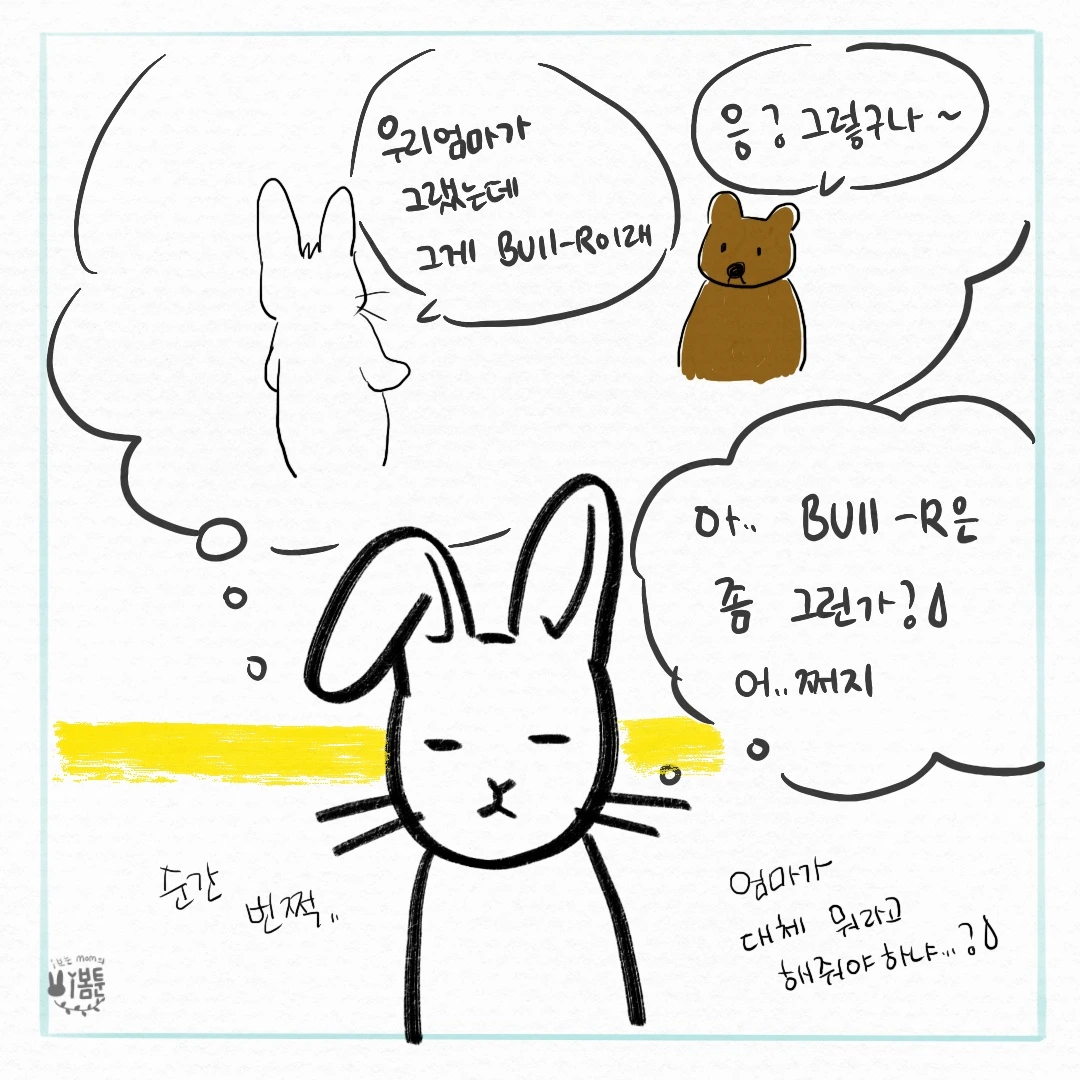 우리엄마가
그랬는데
그게 BUll-R이래
응 응 그렇구나 ~
아.. BUll-R은
좀 그런가?
어..쩌지
순간
번쩍..
엄마가
대체 뭐라고
해줘야 하냐...?
i보는 mom의
i봄툰